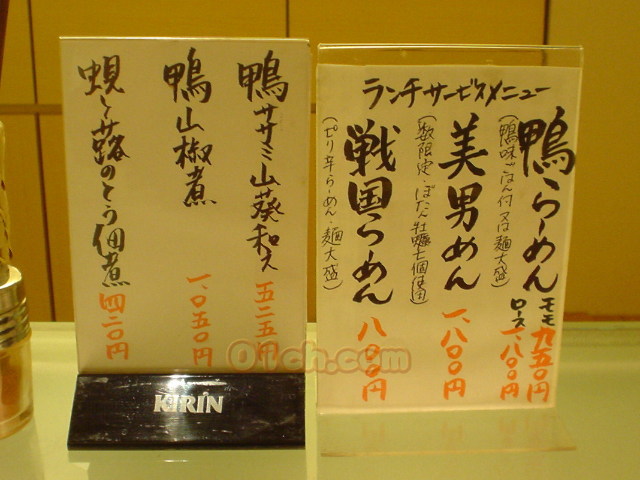 鴨ササミ山葵和え 五二五円
鴨山椒煮 一、〇五〇円
蜆と蕗のとう佃煮 四二〇円
KIRIN
ランチサービスメニュー
鴨らーめん モモ九五〇円
ロース一、八〇〇円
(鴨味ごはん付又は麺大盛)
美男めん 一、八〇〇円
(数限定・ぼたん牡蠣七個使用)
戦国らーめん 八〇〇円
(ピリ辛らーめん・麺大盛)
01ch.com